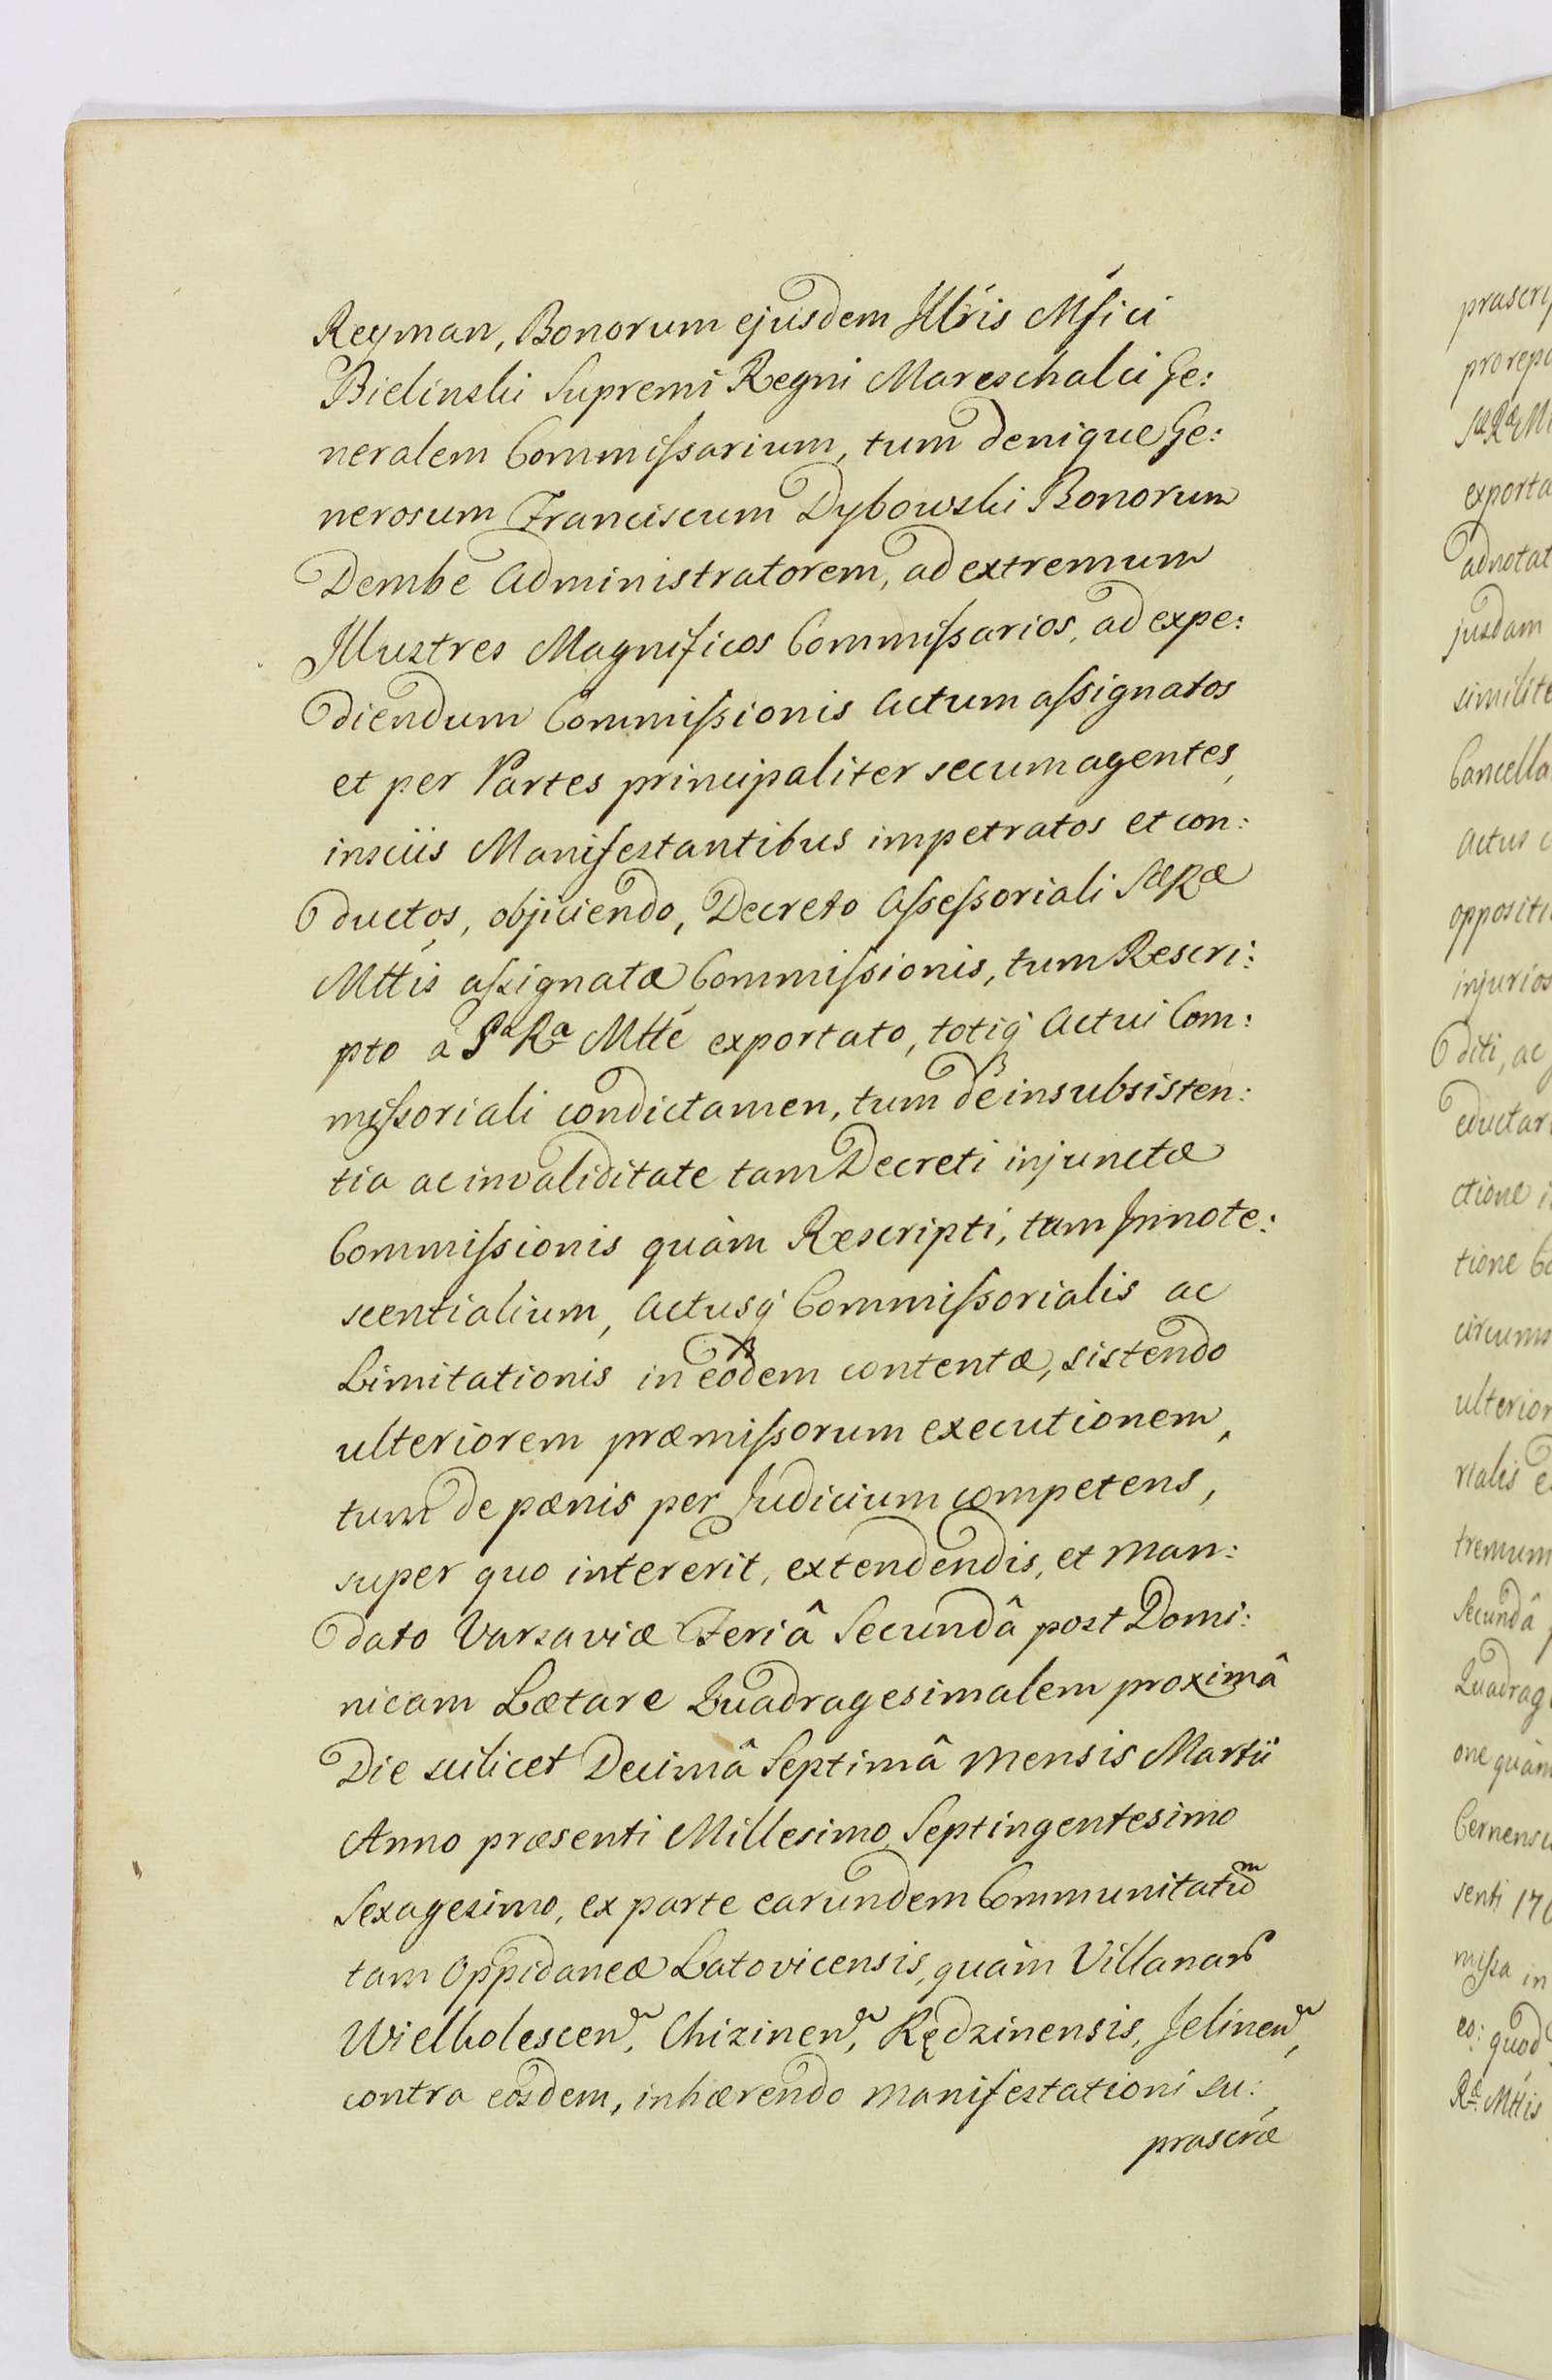 Reyman, Bonorum ejusdem Illris Mfici
Bielinski Supremi Regni Mareschalci Ge:
neralem Commissarium, tum denique Ge:
nerosum Franciscum Dybowski Bonorum
Dembe Administratorem, ad extremum
Illustres Magnificos Commissarios, ad expe:
diendum Commissionis Actum assignatos
et per Partes principaliter secum agentes,
insciis Manifestantibus impetratos et con:
ductos, objiciendo, Decreto Assessoriali Sæ Ræ
Mttis assignatæ Commissionis, tum Rescri:
pto à Sa Ra Mtte exportato, totiq Actui Com:
missoriali condictamen, tum de insubsisten:
tia ac invaliditate tam Decreti injunctæ
Commissionis quàm Rescripti, tum Innote:
scentialium, Actusq Commissorialis ac
Limitationis in eodem contentæ, sistendo
ulteriorem præmissorum executionem,
tum de pænis per Judicium competens,
super quo intererit, extendendis, et man:
dato Varsaviæ Feriâ Secundâ post Domi:
nicam Lætare Quadragesimalem proximâ
Die scilicet Decimâ Septimâ mensis Martii
Anno præsenti Millesimo Septingentesimo
Sexagesimo, ex parte earundem Communitatum
tam Oppidaneæ Latovicensis, quàm Villanar
Wielbolescen, Chizinen, Rędzinensis, Jelinen,
contra eosdem, inhærendo manifestationi su:
prascræ
præscrip
pro repo
Sæ Ræ M
exporta
adnotat
jusdam
similite
Cancella
Actus c
oppositi
injurios
diti, ac
eductar
ctione i
tione Co
circums
ulterior
rialis e
tremum
Secundâ p
Quadrag
one quàm
Cernensi
senti 176
missa in
eo: quod
Ræ Mttis